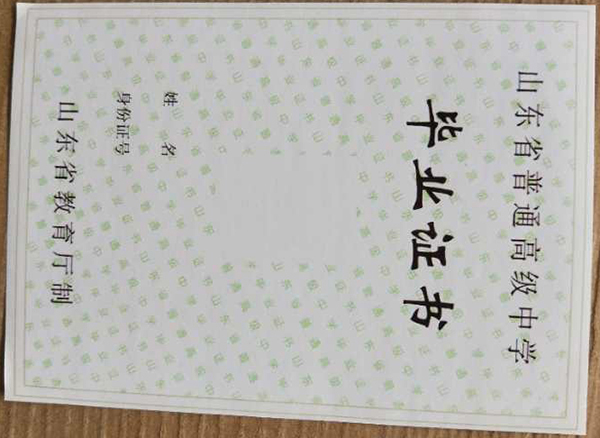 山东省普通高级中学
毕业证书
姓 名
身份证号
山东省教育厅制